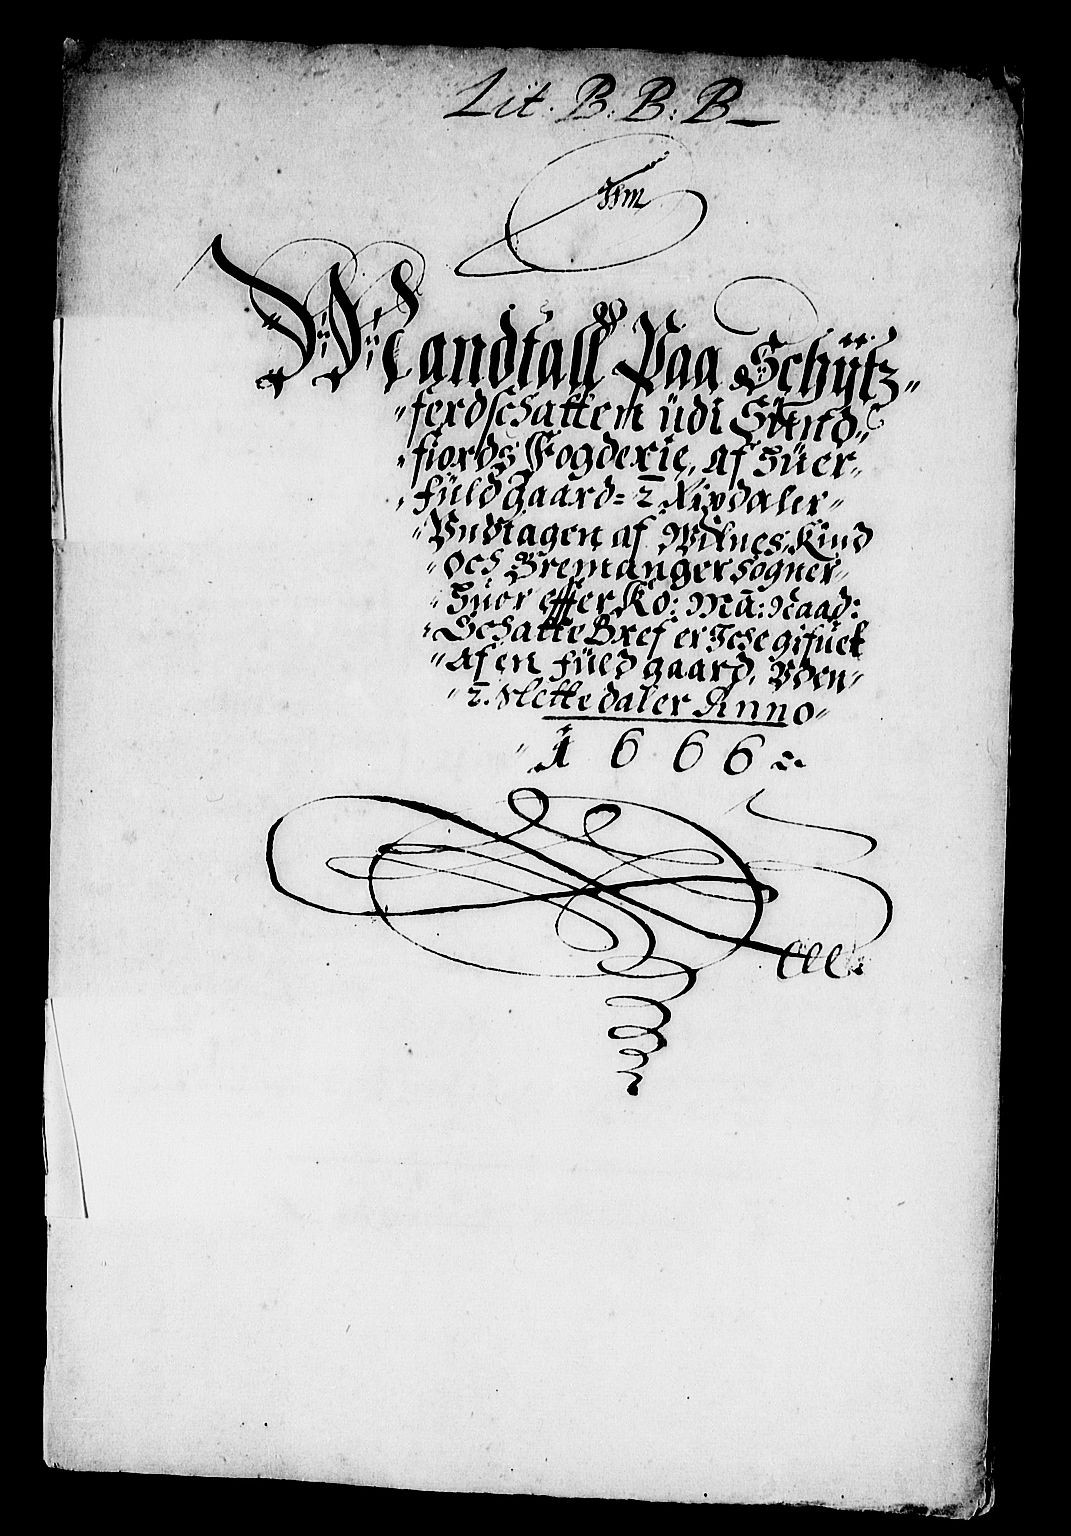 Lit. B. B. B
Mandtall Paa Schÿtz-
ferdschatten üdi Sünd-
fiords Fogderie, af Hüer
füld gaard = 2 Rixdaler
Vndtagen af Wilnes, Kind
och Bremanger sogner
Huor effter Ko: Mü: Naad:
Schatte Bref er Iche gifuet
Af en füld gaard, Vden
2. Slette daler Anno
1666